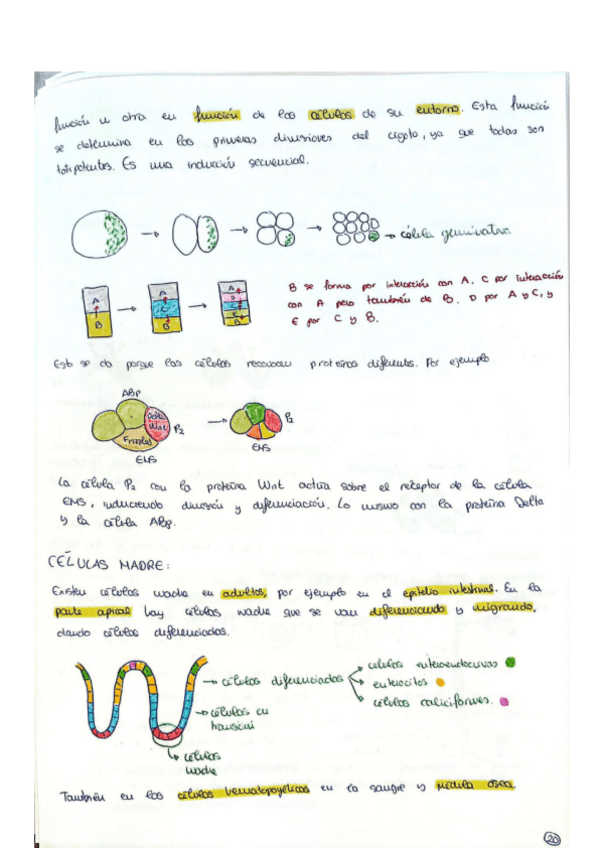 función u otra en función de las células de su entorno. Esta función
se determina en las primeras divisiones del cigoto, ya que todas son
totipotentes. Es una inducción secuencial.
célula germinativa
A
B
A
C
B
A
D
C
E
B
B se forma por interacción con A. C por interacción
con A pero también de B. D por A y C, y
E por C y B.
Esto se da porque las células reconocen proteínas diferentes. Por ejemplo
ABp
Delta
Wnt
P₂
Frizzled
EMS
P₂
EMS
La célula P₂ con la proteína Wnt actúa sobre el receptor de la célula
EMS, induciendo división y diferenciación. Lo mismo con la proteína Delta
y la célula ABp.
CÉLULAS MADRE:
Existen células madre en adultos, por ejemplo en el epitelio intestinal. En la
parte apical hay células madre que se van diferenciando y migrando,
dando células diferenciadas.
células diferenciadas
células enteroendocrinas
enterocitos
células caliciformes.
células en
transición
células
madre
También en las células hematopoyéticas en la sangre y médula ósea.
20